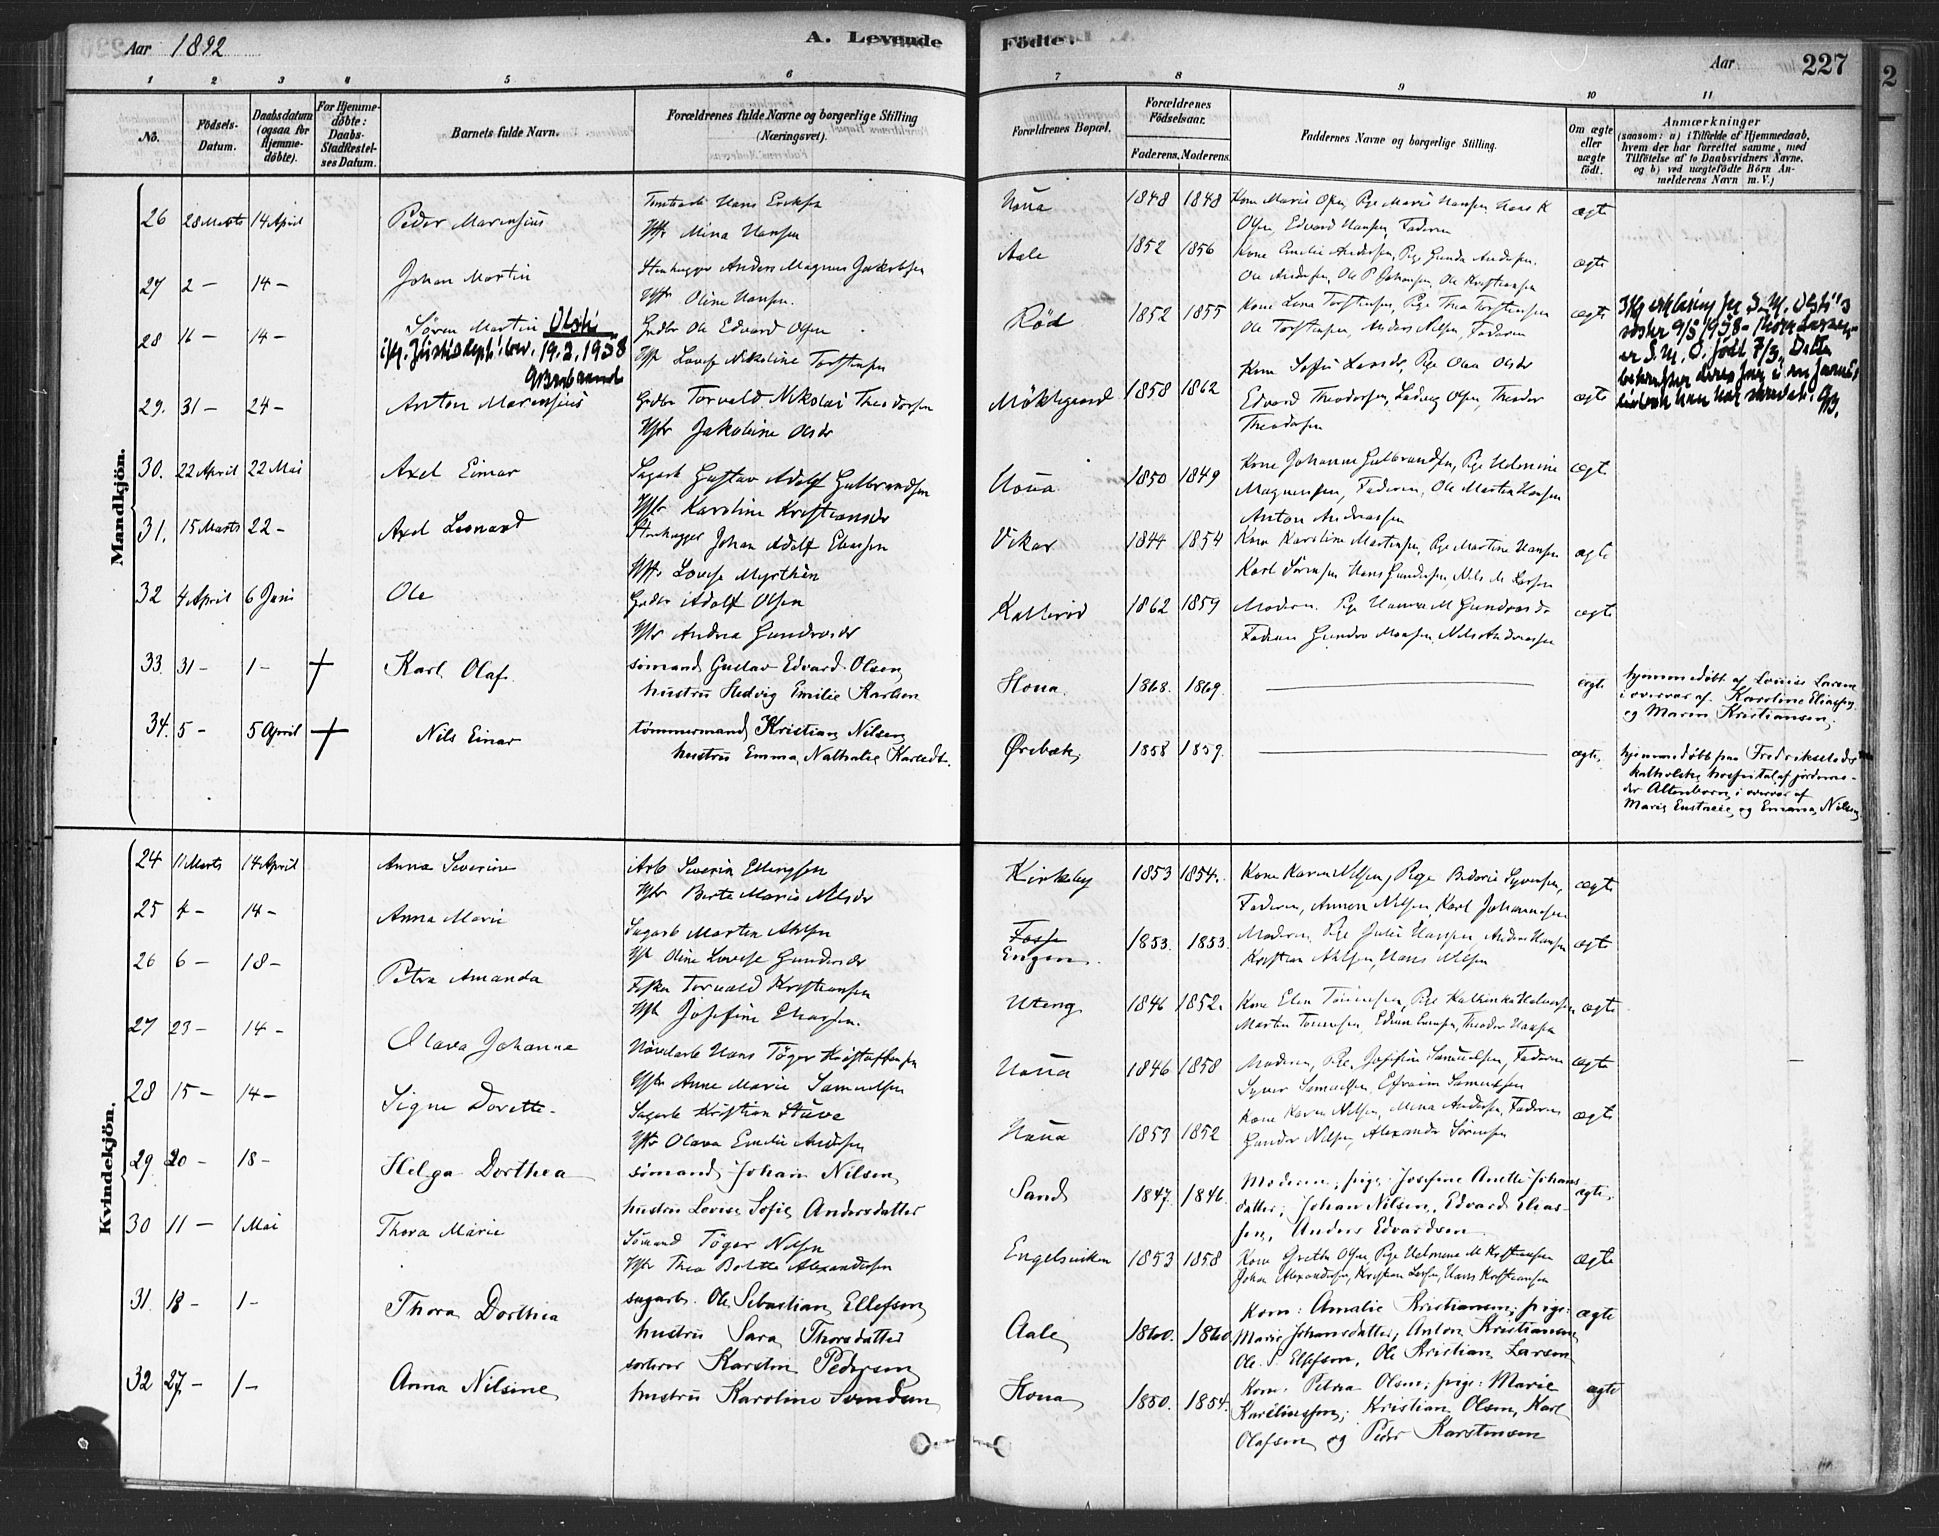 Aar 1892
A. Levende
Födte.
Aar
227
1 2 3 4 5 6
7 8 9 10 11
No.
Födsels-
Datum.
Daabsdatum
(ogsaa for
Hjemme-
döbte).
For Hjemme-
döbte:
Daabs-
Stadfæstel-
ses Datum.
Barnets fulde Navn.
Forældrenes fulde Navne og borgerlige Stilling
(Næringsvei).
Forældrenes Bopæl.
Forældrenes
Födselsaar.
Faderens. Moderens.
Faddernes Navne og borgerlige Stilling.
Om ægte
eller
uægte
födt.
Anmærkninger
(saasom: a) i Tilfælde af Hjemmedaab,
hvem der har forrettet samme, med
Tilföielse af to Daabsvidners Navne,
og b) ved uægtefödte Börn An-
melderens Navn m. V.)
Mandkjön.
26 28 Marts 14 April Peder Marensius Hans Eriksen
Hstr Mina Hansen
Houa 1848 1848 Kone Marie Olsen, Pige Marie Hansen, Hans K
Olsen, Edvard Hansen, Faderen
ægte
27 2 – 14 – Johan Martin Stenhugger Anders Magnus Jakobsen
Hstr Oline Hansen.
Aale 1852 1856 Kone Emilie Andersen, Pige Gunda Andersen,
Ole Andersen, Ole P Johansen, Ole Kristiansen
ægte
28 16 – 14 – Sören Martin Olsti
ifg. Justisdept.' bev. 19.2.1938
Gudbr Ole Edvard Olsen
Hstr Lovise Nikoline Torstensen
Röd 1852 1855 Kone Lena Torstensen, Pige Thea Torstensen
Ole Torstensen, Anders Nilsen, Faderen
ægte
Ifg erklæring fra S. M. Olsti's
söster 9/3 1938
er S. M. O. födt 7/3. Dette
29. 31 – 24 – Anton Marensius Gudbr Torvald Nikolai Theodorsen
Hstr Jakobine Olsdr
Möklegaard 1858 1862 Kone Sofie Larsdr, Pige Olea Olsdr
Edvard Theodorsen, Ludvig Olsen, Theodor
Theodorsen
ægte
30. 22 April 22 Mai Axel Einar Sagarb Gustav Adolf Gulbrandsen
Hstr Karoline Kristiansdr
Houa 1850 1849 Kone Johanne Gulbrandsen, Pige Helmine
Magnussen, Faderen, Ole Martin Hansen
Anton Andreassen
ægte
31. 15 Marts 22 – Axel Leonard Stenhugger Johan Adolf Eliassen
Hstr Lovise Myrthèn
Vikar 1844 1854 Kone Karoline Martinsen, Pige Martine Hansen
Karl Sörensen Hans Gundersen Nils M Larsen
ægte
32 4 April 6 Juni Ole Gudbr Adolf Olsen
Hstr Andrea Gundrosdr
Kalleröd 1862 1859 Moderen. Pige Hanna M Gundrosdr
Faderen Gundro Monsen Nils Andreassen
ægte
33 31 – 1 – + Karl Olaf. sömand Gustav Edvard Olsen,
hustru Hedvig Emilie Karlsen
Houa. 1868. 1869. ægte
hjemmedöbt af Lovise Larsen
i overvær af. Karoline Eliassen
og Maren Kristiansen.
34. 5 – 5 April + Nils Einar tömmermand Kristian Nilsen
hustru Emma Nathalie Karlsdt.
Örebæk 1858 1859. ægte,
hjemmedöbt paa Fredrikstads
katholske hospital af jordmo-
der Altenborn, i overvær af
Marie Eustacie og Emma Nilsen
Kvindekjön.
24 11 Marts 14 April Anna Severine Arb Severin Ellingsen
Hstr Berte Marie Nilsdr
Kirkeby 1853 1854. Kone Karen Nilsen, Pige Bedorie Syversen,
Faderen, Anton Nilsen, Karl Johannesen
ægte
25 4 – 14 – Anna Marie Sagarb Martin Ahlsen
Hstr Oline Lovise Gundersdr
Fosse
Engen. 1853. 1853. Moderen, Pige Julie Hansen, Anders Hansen
Kristian Ahlsen, Hans Nilsen
ægt
26 6 – 18 – Petra Amanda Fisker Torvald Kristiansen
Hstr Josefine Eliassen.
Uteng 1846 1852. Kone Elen Tönnesen, Pige Kathinka Halvorsen,
Martin Tönnesen, Edvin Evensen, Theodor Hansen
ægte
27 23 – 14 – Olava Johanne Hövelarb Hans Töger Kristoffersen
Hstr Anne Marie Samuelsen
Houa 1846 1858 Moderen, Pige Josefine Samuelsen, Faderen
Syver Samuelsen, Efraim Samuelsen
ægte
28 15 – 14 – Signe Dorette. Sagarb Kristian Stuve
Hstr Olava Emilie Andersen
Houa 1853 1852 Kone Karen Nilsen, Mena Andersen, Faderen
Gunder Nilsen, Alexander Sörensen
ægte
29 20 – 18 – Helga Dorthea sömand Johan Nilsen
hustru Lovise Sofie Andersdatter
Sand 1847. 1846. Moderen; pige: Josefine Anette Johans-
datter; Johan Nilsen, Edvard Elias-
sen, Anders Edvardsen
ægte.
30 11 – 1 Mai Thora Marie Sömand Töger Nilsen
Hstr Thea Bolette Alexandersen
Engelsviken 1853 1858 Kone Grethe Olsen Pige Helmine M Kristiansen
Johan Alexandersen, Kristian Larsen, Hans Kristiansen
ægte
31. 18 – 1 – Thora Dorthea sagarb. Ole Sebastian Ellefsen
hustru Sara Thorsdatter
Aale 1860. 1860 Kone: Amalie Kristiansen; pige:
Marie Johansdatter, Anton Kristiansen
Ole S. Ellefsen, Ole Kristian Larsen
ægte
32 27 – 1 – Anna Nilsine sorterer Karsten Pedersen
hustru Karoline Svendsen
Houa 1850. 1854. Kone: Petra Olsen; pige: Marie
Karèliussen; Kristian Olsen, Karl
Olafsen og Peder Karstensen
ægte